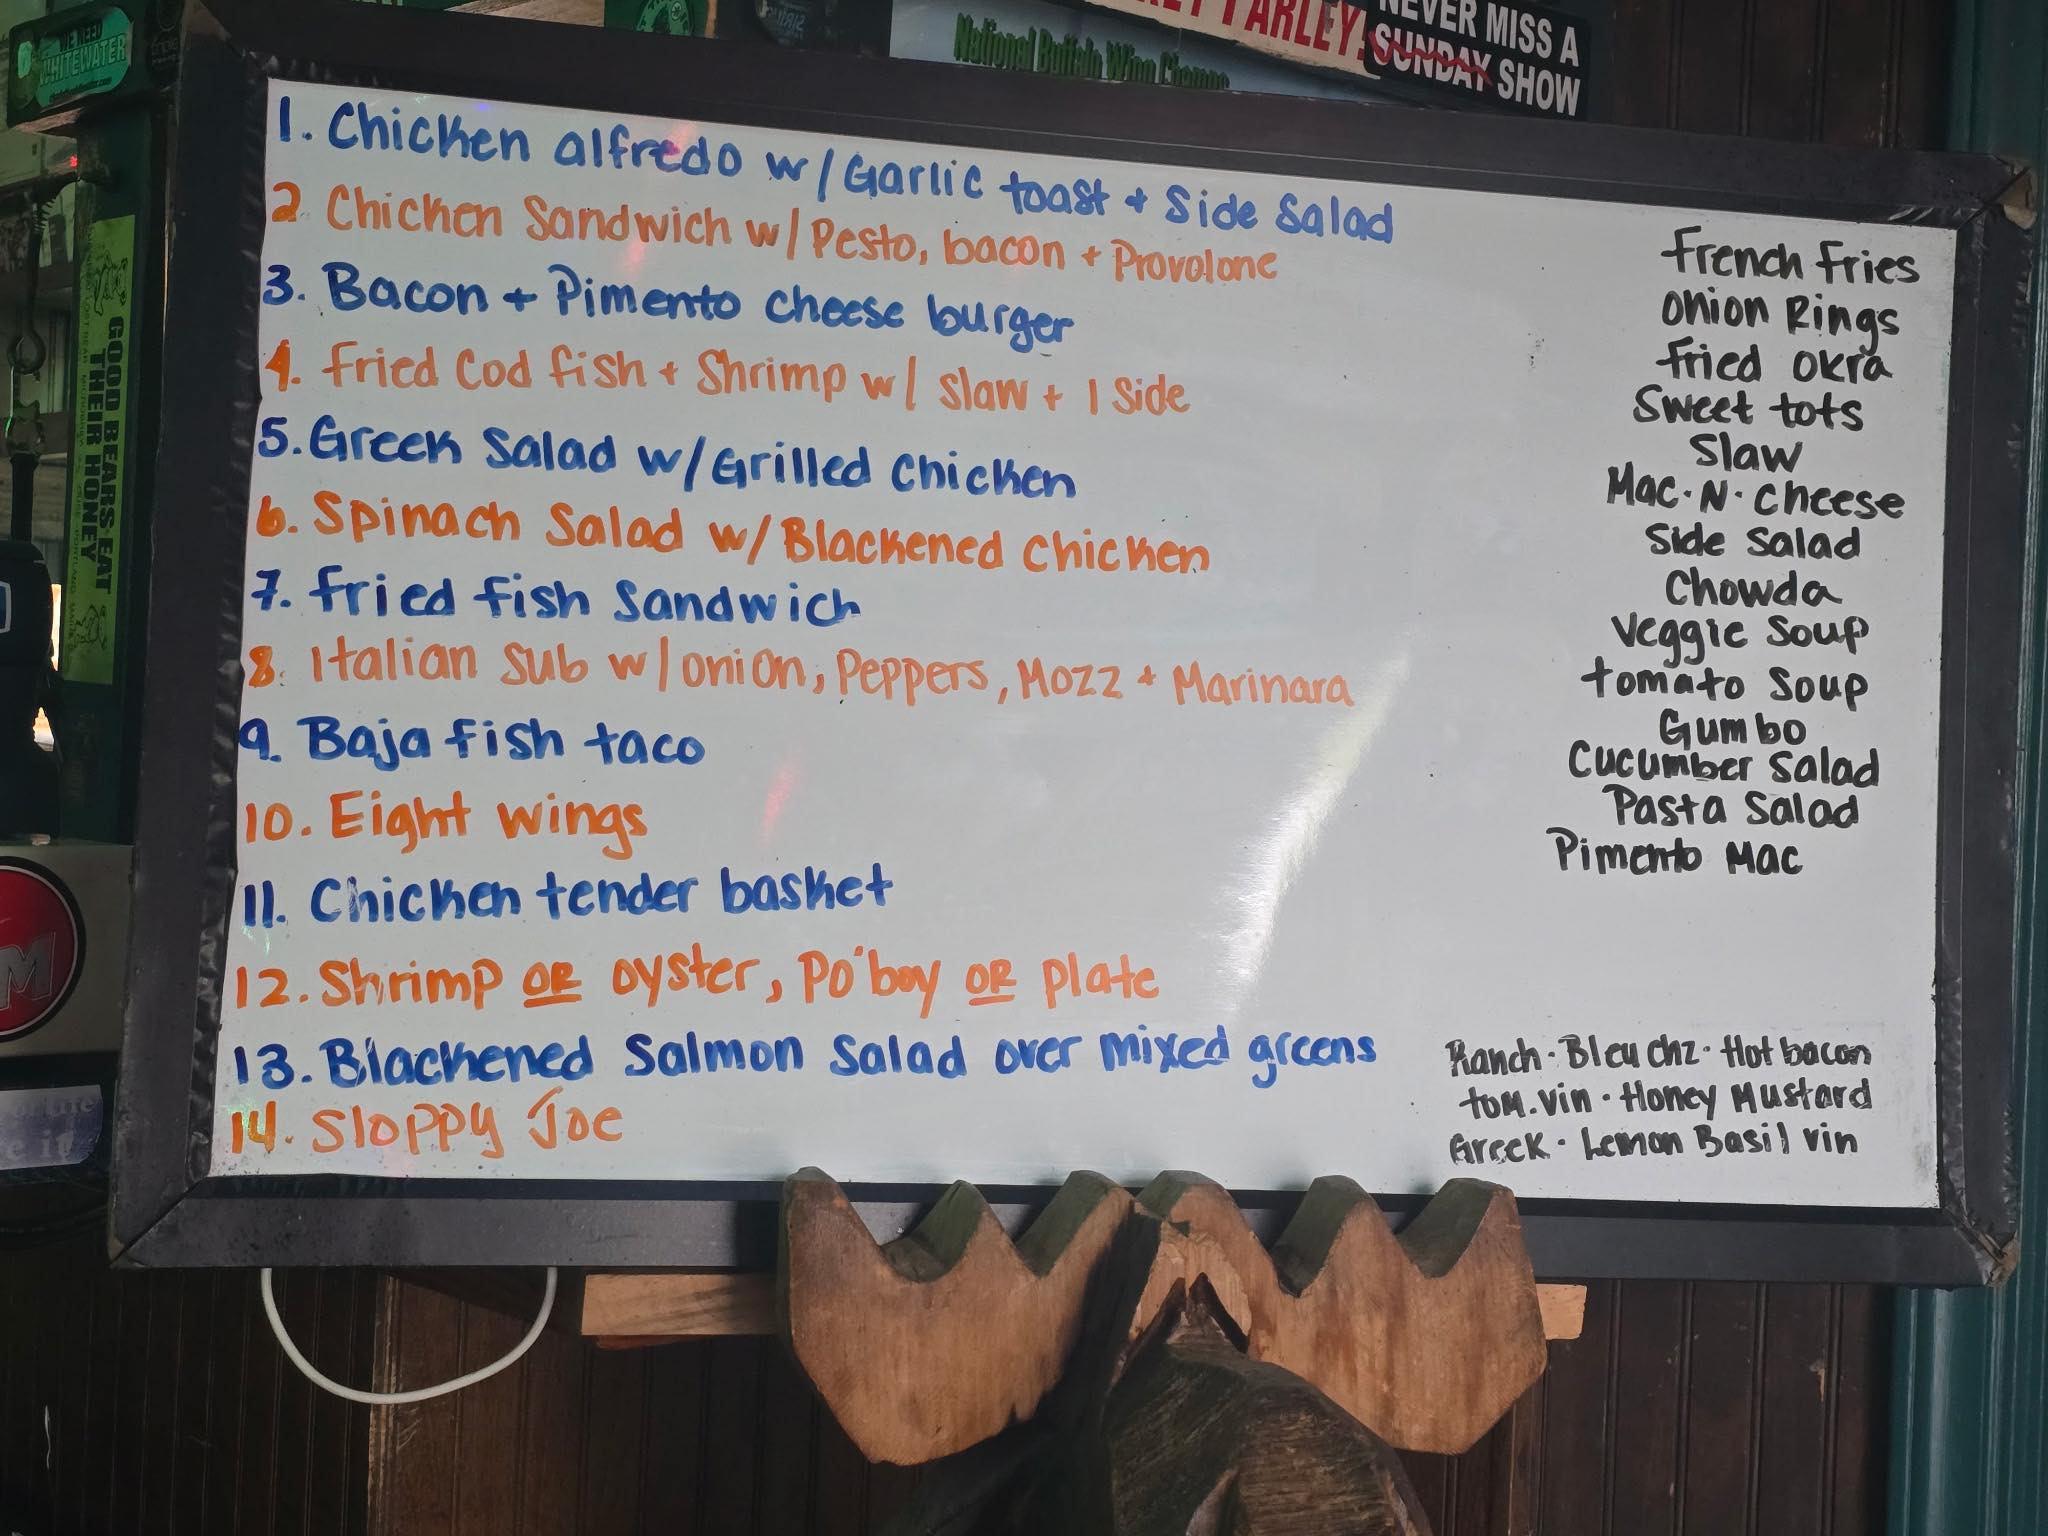 WE NEED
WHITEWATER
National Buffalo Wing Champs
PARLEY!
NEVER MISS A
SUNDAY SHOW
GOOD BEARS EAT
THEIR HONEY
1. Chicken alfredo w/ Garlic toast + Side Salad
2. Chicken Sandwich w/ Pesto, bacon + Provolone
3. Bacon + Pimento cheese burger
4. Fried Cod fish + Shrimp w/ slaw + 1 Side
5. Greek Salad w/ Grilled Chicken
6. Spinach Salad w/ Blackened Chicken
7. Fried fish Sandwich
8. Italian Sub w/ onion, Peppers, Mozz + Marinara
9. Baja fish taco
10. Eight wings
11. Chicken tender basket
12. Shrimp OR oyster, Po'boy OR plate
13. Blackened Salmon Salad over mixed greens
14. Sloppy Joe
French Fries
Onion Rings
Fried Okra
Sweet tots
Slaw
Mac·N·Cheese
Side Salad
Chowda
Veggie Soup
tomato Soup
Gumbo
Cucumber Salad
Pasta Salad
Pimento Mac
Ranch·Bleu chz·Hot bacon
tom.vin·Honey Mustard
Greek·Lemon Basil vin